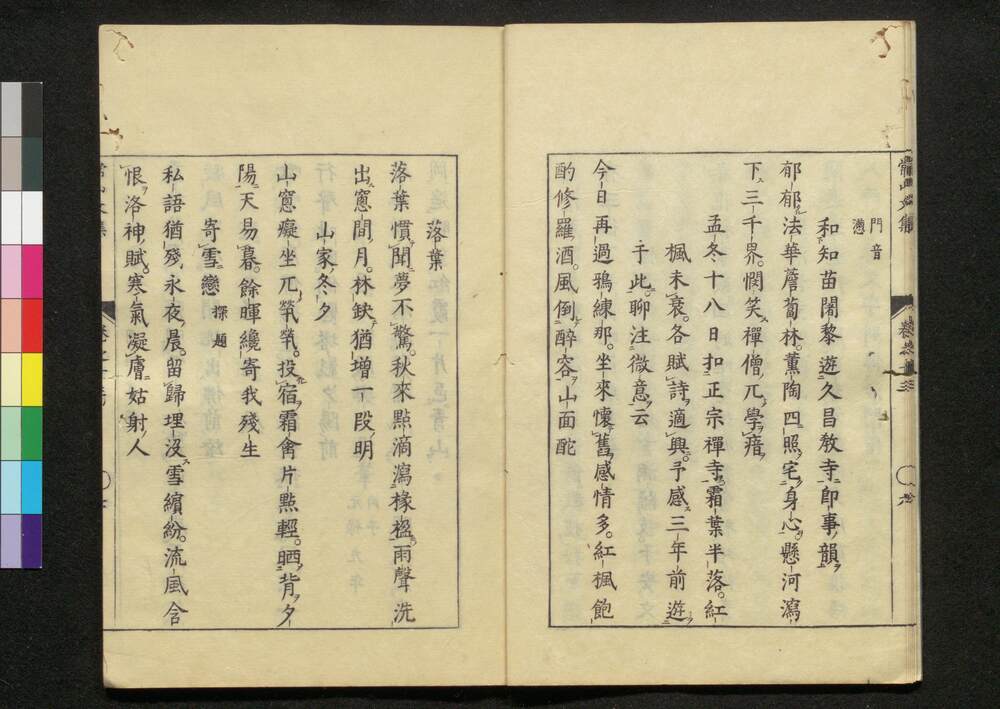 常山文集
卷之十三
門音
懣
和知苗闍黎遊久昌教寺即事韻
郁郁法華薝蔔林薰陶四照宅身心懸河瀉
下三千界憫笑禪僧兀學瘖
孟冬十八日扣正宗禪寺霜葉半落紅
楓未衰各賦詩適興予感三年前遊
于此聊注微意云
今日再過鴉練那坐來懷舊感情多紅楓飽
酌修羅酒風倒醉容山面酡
落葉
落葉慣聞夢不驚秋來點滴瀉椽楹雨聲洗
出窻間月林缺猶增一段明
山家冬夕
山窻癡坐兀煢煢投宿霜禽片點輕晒背夕
陽天易暮餘暉纔寄我殘生
寄雪戀 探題
私語猶殘永夜晨留歸埋没雪繽紛流風含
恨洛神賦寒氣凝膚姑射人